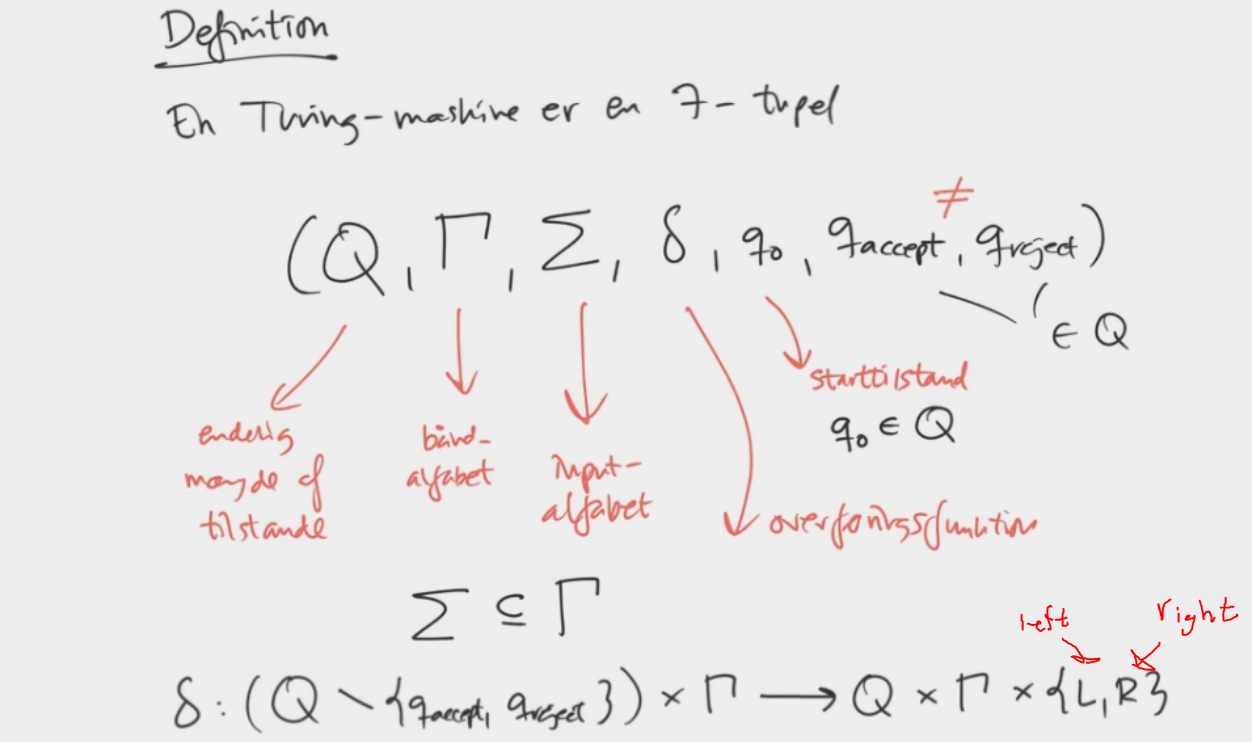 Definition
En Turing-maskine er en 7-tupel
≠
(Q, Γ, Σ, δ, q₀, q_accept, q_reject)
∈ Q
starttilstand
q₀ ∈ Q
endelig
mængde af
tilstande
bånd-
alfabet
Input-
alfabet
overføringsfunktion
Σ ⊆ Γ
left
right
δ : (Q ∖ {q_accept, q_reject}) × Γ ⟶ Q × Γ × {L, R}